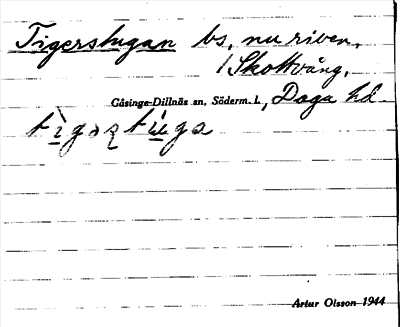 Tigerstugan bs, nu riven,
i Skottvång,
Gåsinge-Dillnäs sn, Söderm. l., Daga hd.
Artur Olsson 1944